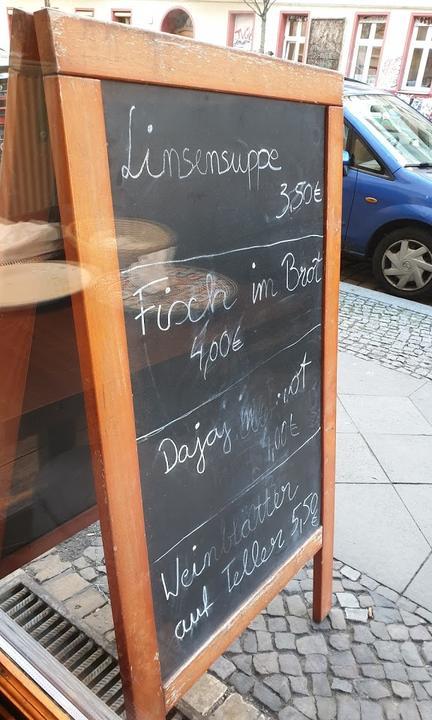 Linsensuppe
3,50€
Fisch im Brot
4,00€
Dajaj
Weinblätter
auf Teller 5,50€